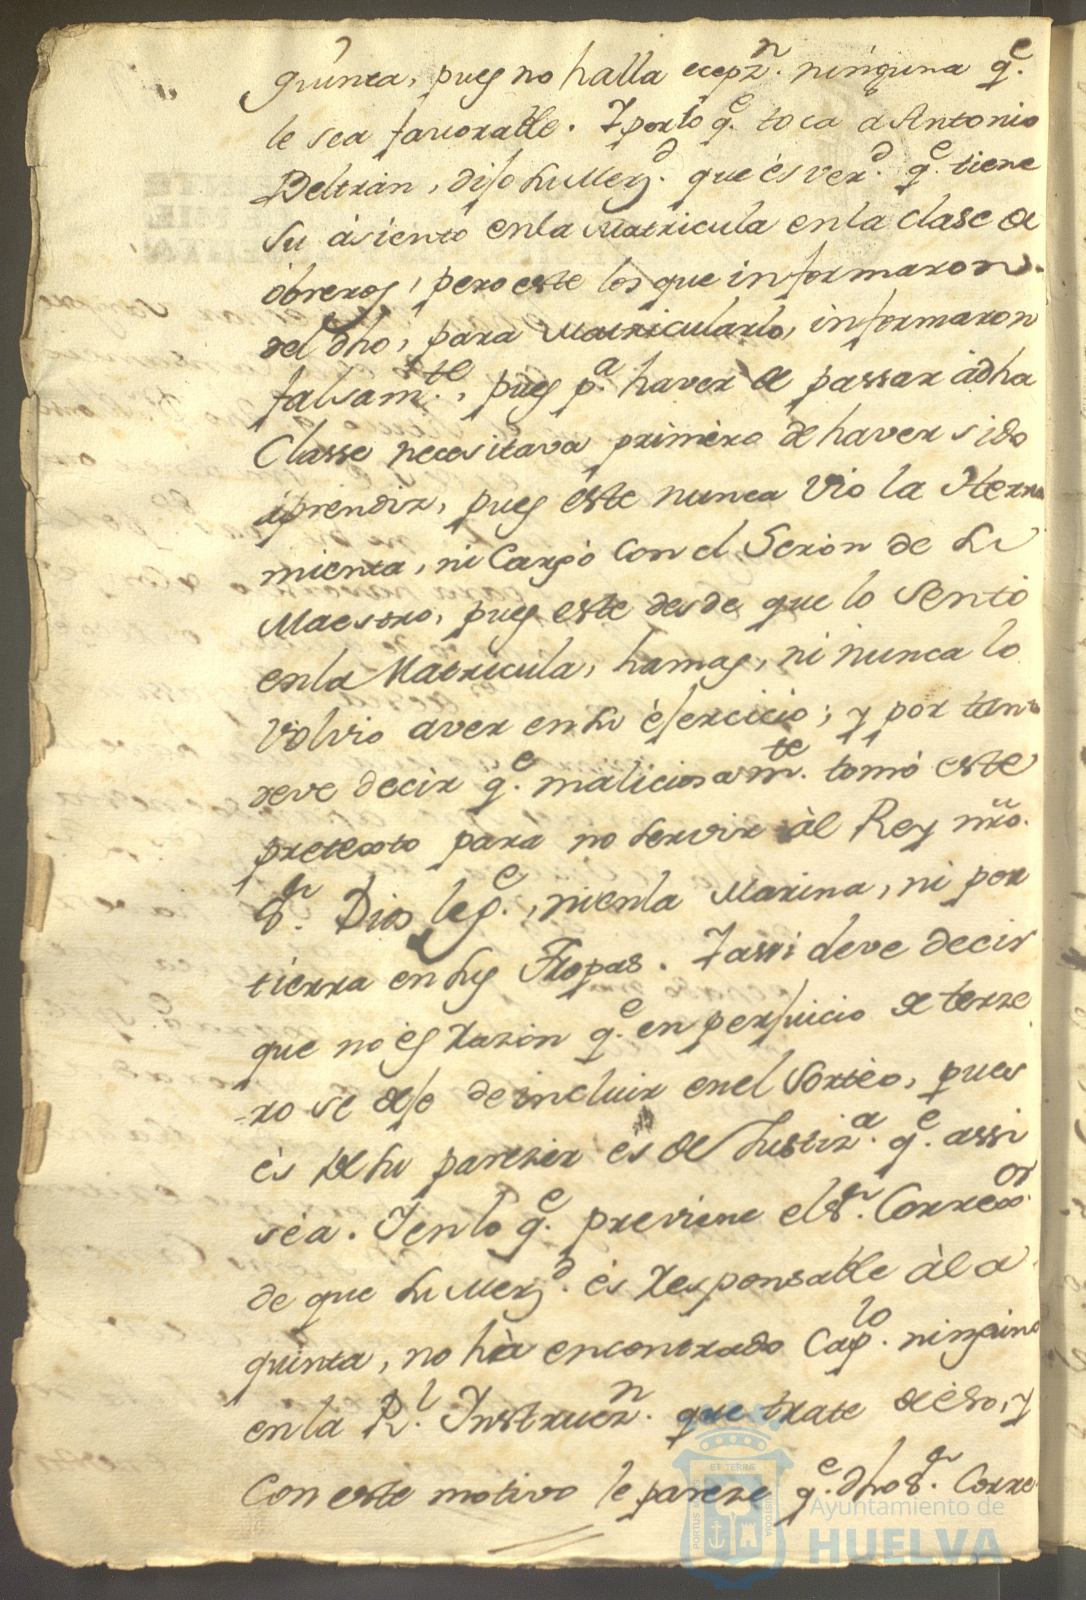 quinta, pues no halla ecepzn. ninguna qe.
le sea favorable. Y por lo qe. toca a Antonio
Beltran, dijo su Merzd. que és verd. qe. tiene
su ásiento en la Matricula en la clase de
óbreros, pero este los que informaron
del dho, para Matricularlo, informaron
falsamte., pues pa. haver de passar á dha
Classe necesitava primero de haver sido
aprendiz, pues este nunca vio la Herra
mienta, ni Cargó con el Serón de su
Maestro, pues este desde que lo Sentó
en la Matricula, hamas, ni nunca lo
volvio a ver en su éjercicio; y por tanto
deve decir qe. maliciosamte. tomó este
pretexto para no servir ál Rey nro.
Sr. Dios lege., ni en la Marina, ni por
tierra en sus Tropas. Y assi deve decir
que no és razon qe. en perjuicio de terze
-ro se deje de incluir en el Sorteo, pues
és de su parezer és de Justiza. qe. assi
séa. Y en lo qe. previene el Sr. Corregor.
de que su Merzd. és responsable ála
quinta, no há encontrado Caplo. ninguno
en la Rl. Instruczn. que trate de éso, y
Con este motivo le pareze qe. dho Sr. Corre
ET TERRÆ
PORTUS MARIS
CUSTODIA
Ayuntamiento de
HUELVA